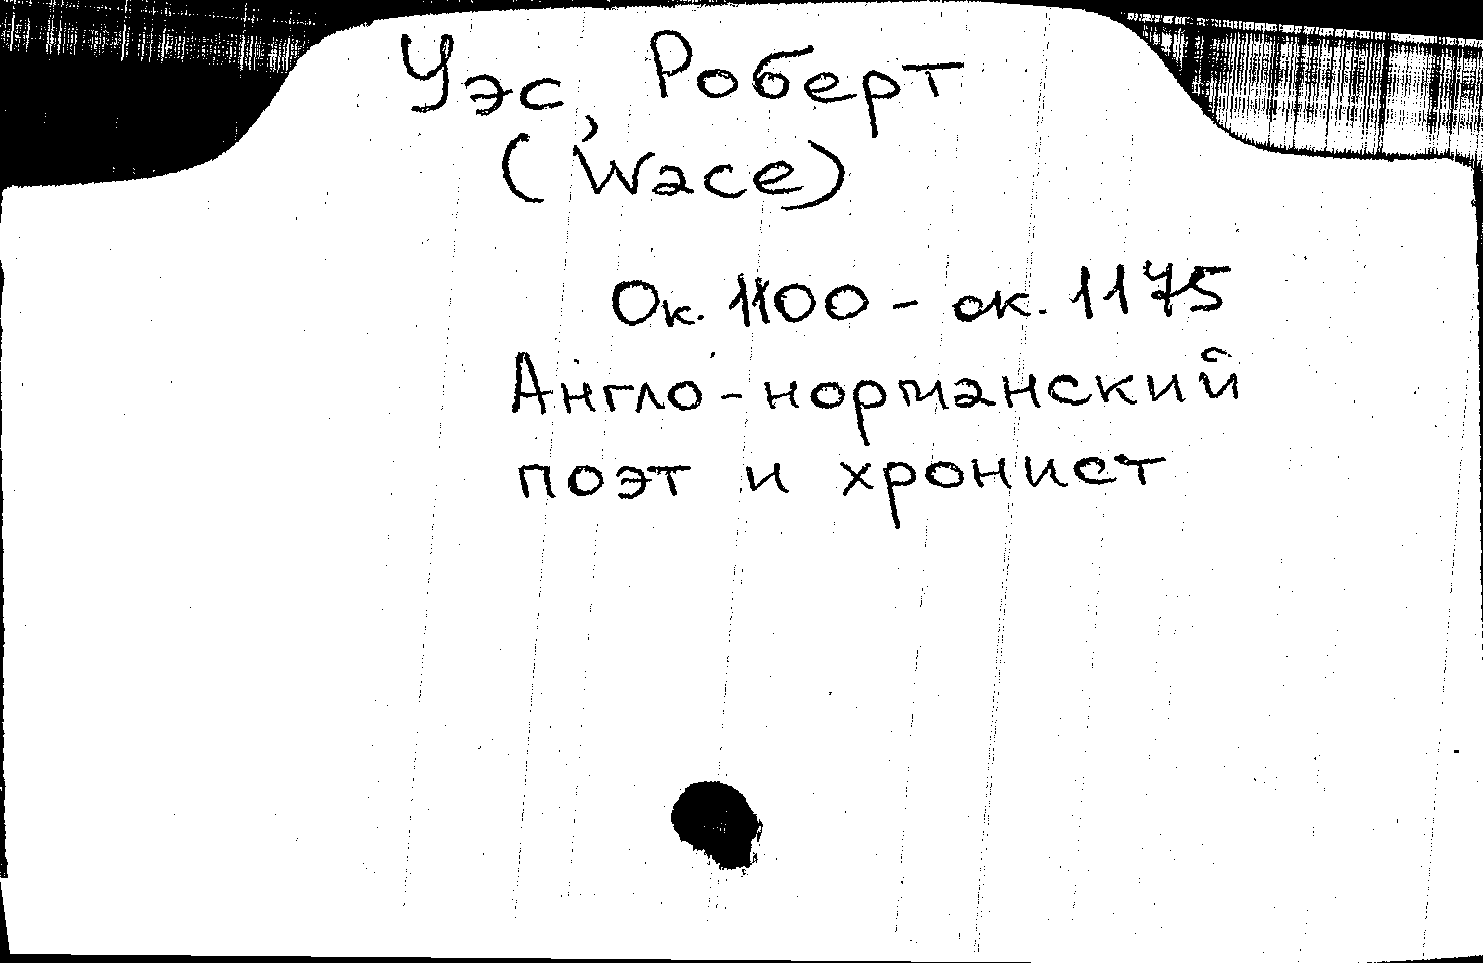 Уэс, Роберт
(Wace)
Ок. 1100 - ок. 1175
Англо-норманский
поэт и хронист